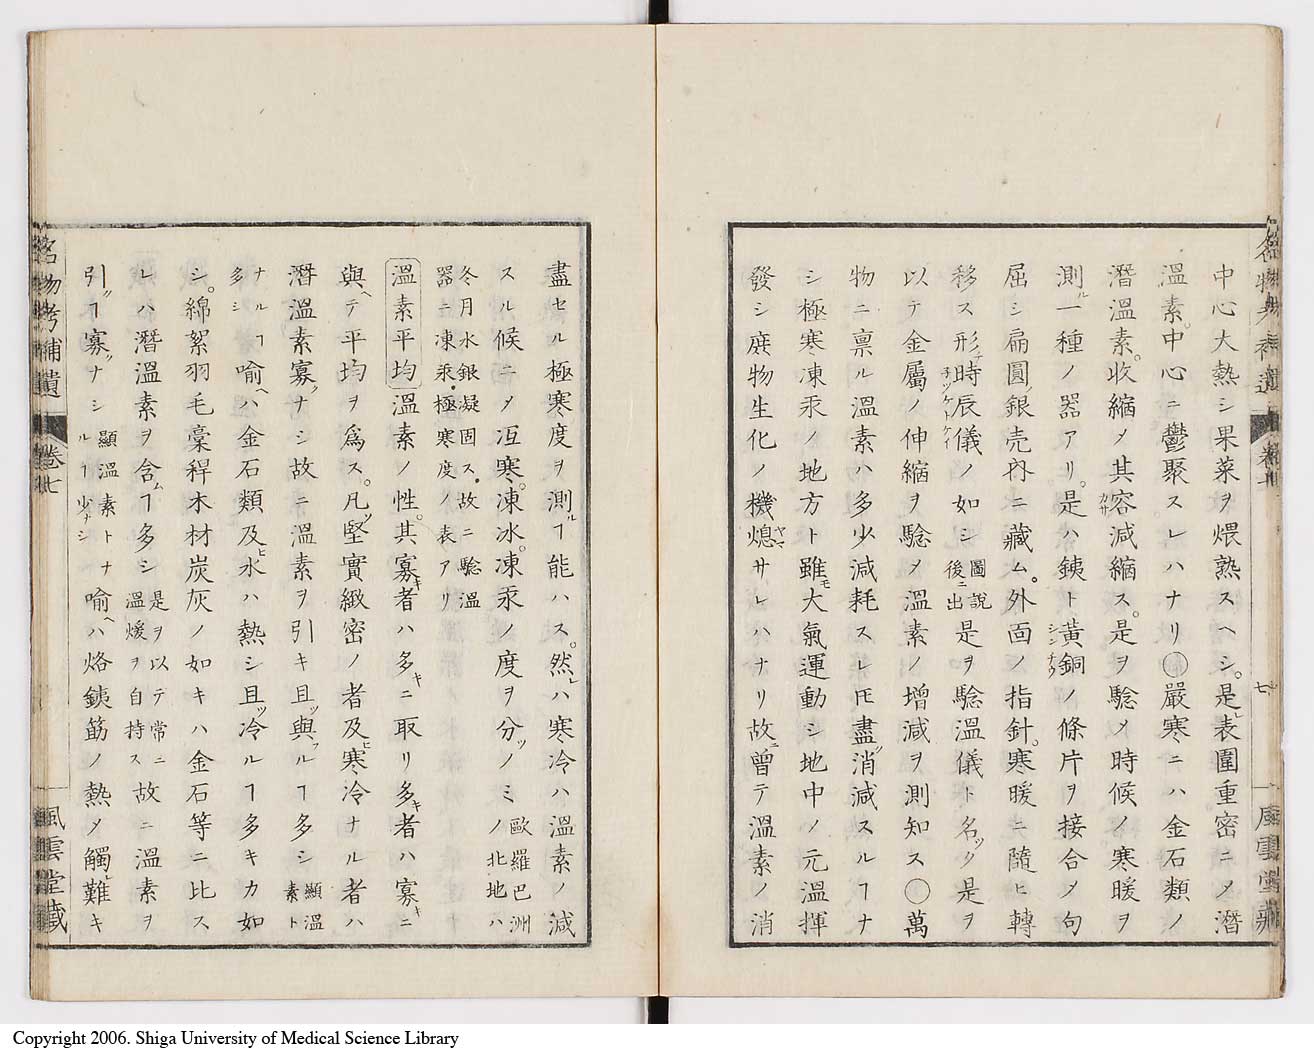 中心大熱シ果菜ヲ煨熟スヘシ。是レ表圍重密ニメ潛
溫素。中心ニ鬱聚スレハナリ○嚴寒ニハ金石類ノ
潛溫素。收縮メ其容カサ減縮ス。是ヲ驗メ時候ノ寒暖ヲ
測ルヿ一種ノ器アリ。是ハ銕ト黃銅シンチウノ條片ヲ接合メ句
屈シ扁圓ノ銀壳內ニ藏ム。外面ノ指針。寒暖ニ隨ヒ轉
移ス形チ時辰儀チツケトケイノ如シ圖說後ニ出是ヲ驗溫儀ト名ツク是ヲ
以テ金屬ノ伸縮ヲ驗メ溫素ノ增減ヲ測知ス○萬
物ニ禀ル溫素ハ多少減耗スレ𪜈盡ク消減スルヿナ
シ極寒凍汞ノ地方ト雖モ大氣運動シ地中ノ元溫揮
發シ庶物生化ノ機熄ヤマサレハナリ故ニ曾テ溫素ノ消
盡セル極寒度ヲ測ルヿ能ハス。然レハ寒冷ハ溫素ノ減
スル候ニメ冱寒。凍冰。凍汞ノ度ヲ分ツノミ歐羅巴洲ノ北地ハ
冬月水銀凝固ス。故ニ驗溫器ニ凍汞・極寒度ノ表アリ
溫素平均 溫素ノ性。其寡キ者ハ多キニ取リ多キ者ハ寡キニ
與ヘテ平均ヲ爲ス。凡ソ堅實緻密ノ者及ヒ寒冷ナル者ハ
潛溫素寡クナシ故ニ溫素ヲ引キ且ツ與フルヿ多シ顯溫素ト
ナルヿ多シ喻ヘハ金石類及ヒ水ハ熱シ且ツ冷ルヿ多キカ如
シ。綿絮羽毛藁稈木材炭灰ノ如キハ金石等ニ比ス
レハ潛溫素ヲ含ムヿ多シ是ヲ以テ常ニ溫煖ヲ自持ス故ニ溫素ヲ
引クヿ寡クナシ顯溫素トナルヿ少ナシ喻ヘハ烙銕筋ノ熱メ觸レ難キ
名物考補遺 卷七
風雲堂藏
七